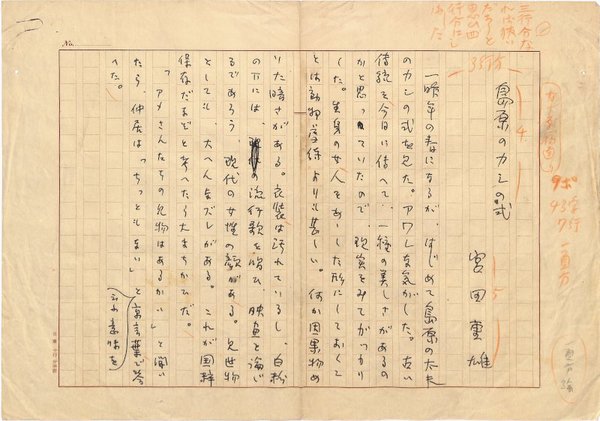 三行分な
れば狭い
だろうと
思ひ四
行分にし
ました
3行分
4
5
9ポ
43字
7行
一頁分
島原のカシの式
宮田重雄
一昨年の春になるが、はじめて島原の太夫
のカシの式を見た。アワレな気がした。古い
伝統を今日に伝へて、一種の美しさがあるの
かと思っていたので、現実をみてがっかり
した。生身の女人をあゝした形にしておくこ
とは動物学級よりも甚しい。何か因果物め
いた暗さがある。衣装は汚れているし、白粉
の下には、の流行歌を唄ひ、映画を論じ
るであろう、現代の女性の顔がある。見世物
としても、大へん気ズレがある。これが国粋
保存だなぞと考へたら大まちがひだ。
「アメさんたちの見物はあるかい」と聞い
たら、仲居は「ちっともない」と京言葉で答
へた。
いふ意味を